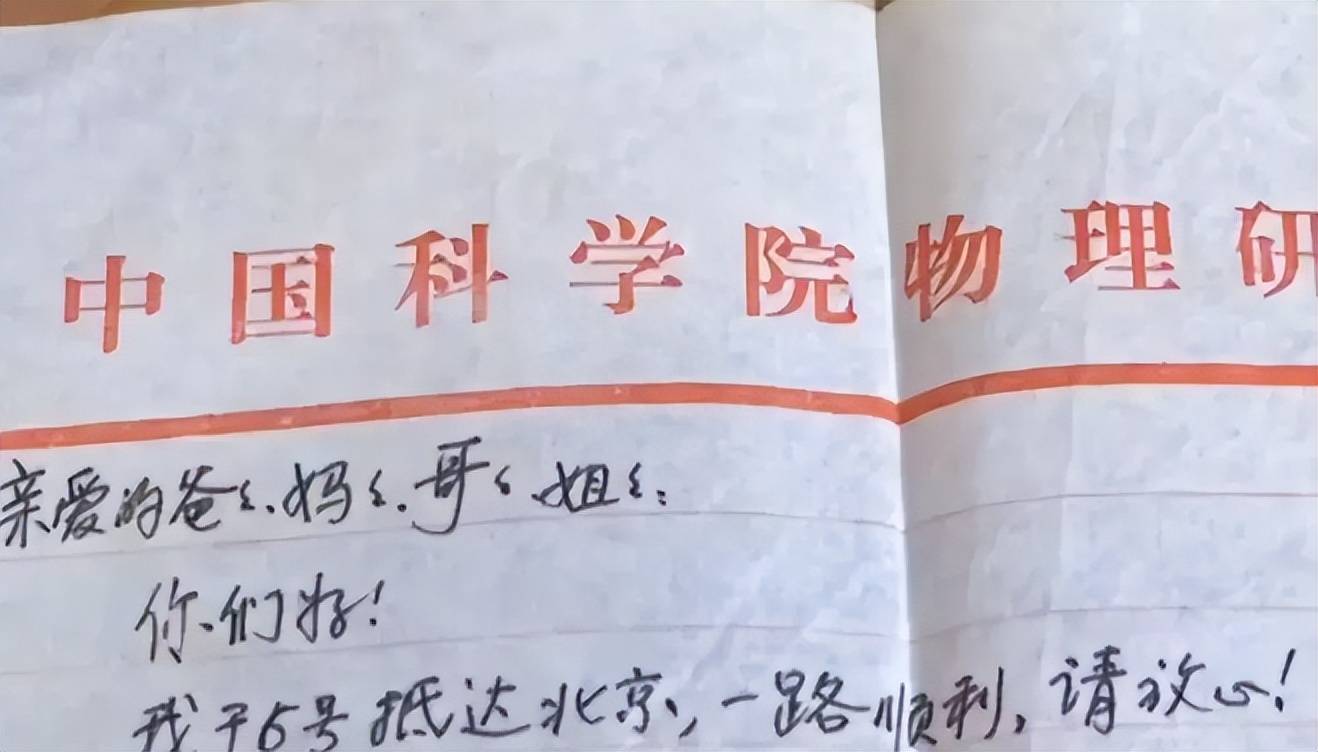 中国科学院物理研
亲爱的爸々、妈々、哥々、姐々：
你们好！
我于6号抵达北京，一路顺利，请放心！